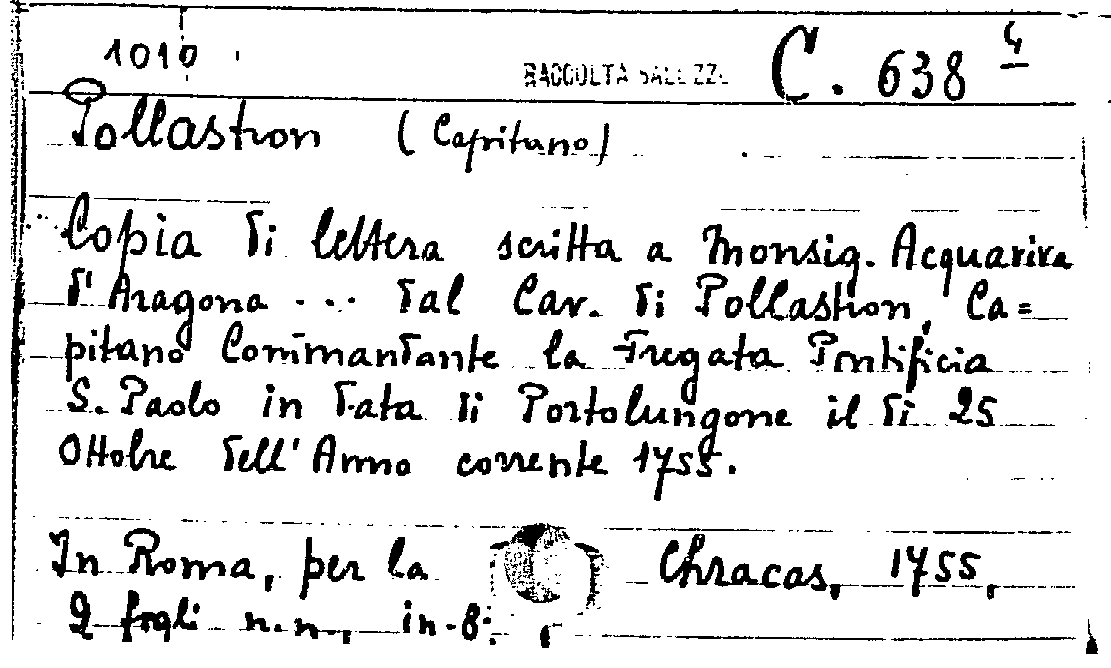 1010
RACCOLTA SALEZZI C. 638 4
Pollastron (Capitano)
Copia di lettera scritta a Monsig. Acquaviva
d'Aragona ... dal Cav. di Pollastron, Ca=
pitano Commandante la Fregata Pontificia
S. Paolo in data di Portolungone il dì 25
Ottobre dell'Anno corrente 1755.
In Roma, per la Chracas, 1755,
2 fogli n.n., in-8°.